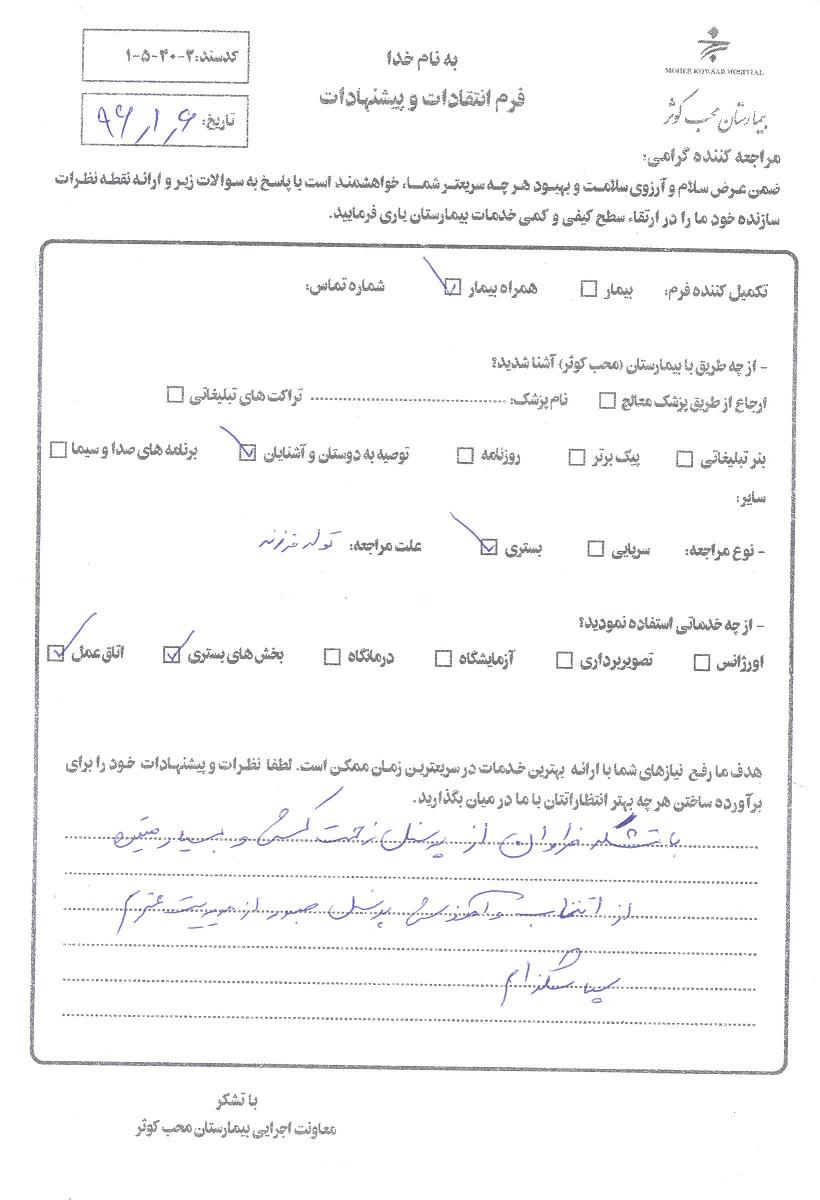 MOHEB KOWSAR HOSPITAL
بیمارستان محب کوثر
به نام خدا
فرم انتقادات و پیشنهادات
کدسند: ۲-۴۰-۵-۱
تاریخ: ۹۶٫۱٫۶
مراجعه کننده گرامی:
ضمن عرض سلام و آرزوی سلامت و بهبود هر چه سریعتر شما، خواهشمند است با پاسخ به سوالات زیر و ارائه نقطه نظرات
سازنده خود ما را در ارتقاء سطح کیفی و کمی خدمات بیمارستان یاری فرمایید.
تکمیل کننده فرم: بیمار □ همراه بیمار ☑ شماره تماس:
- از چه طریق با بیمارستان (محب کوثر) آشنا شدید؟
ارجاع از طریق پزشک معالج □ نام پزشک: ........................................ تراکت های تبلیغاتی □
بنر تبلیغاتی □ پیک برتر □ روزنامه □ توصیه به دوستان و آشنایان ☑ برنامه های صدا و سیما □
سایر:
- نوع مراجعه: سرپایی □ بستری ☑ علت مراجعه: تولد فرزند
- از چه خدماتی استفاده نمودید؟
اورژانس □ تصویربرداری □ آزمایشگاه □ درمانگاه □ بخش های بستری ☑ اتاق عمل ☑
هدف ما رفع نیازهای شما با ارائه بهترین خدمات در سریعترین زمان ممکن است. لطفا نظرات و پیشنهادات خود را برای
برآورده ساختن هر چه بهتر انتظاراتتان با ما در میان بگذارید.
با تشکر فراوان از پرسنل زحمت کش و بسیار
از انتخاب و آموزش پرسنل صبور از مدیریت محترم
سپاسگزارم
با تشکر
معاونت اجرایی بیمارستان محب کوثر